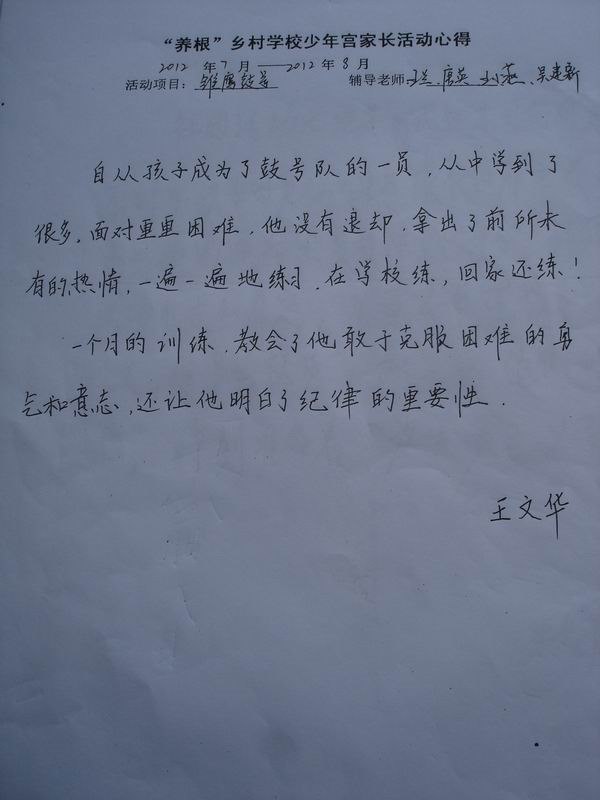 “养根”乡村学校少年宫家长活动心得
2012 年 7 月 ——2012 年 8 月
活动项目：雏鹰鼓号 辅导老师：王兰、唐英、刘燕、吴建新
自从孩子成为了鼓号队的一员，从中学到了
很多。面对重重困难，他没有退却，拿出了前所未
有的热情，一遍一遍地练习，在学校练，回家还练！
一个月的训练，教会了他敢于克服困难的勇
气和意志，还让他明白了纪律的重要性。
王文华